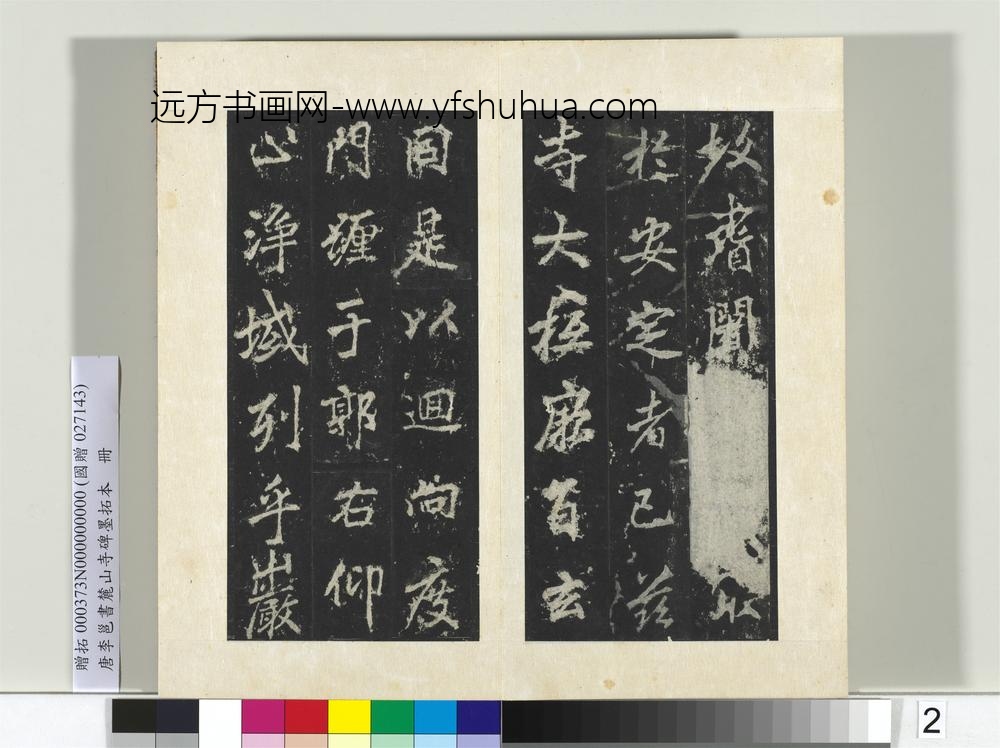 远方书画网-www.yfshuhua.com
故耆闍取
於安定者已茲
寺大抵厥旨玄
同是以迴尚度
門壥于郭右仰
止淨域列乎巖
贈拓 000373N000000000 (國贈 027143)
唐李邕書麓山寺碑墨拓本 冊
2